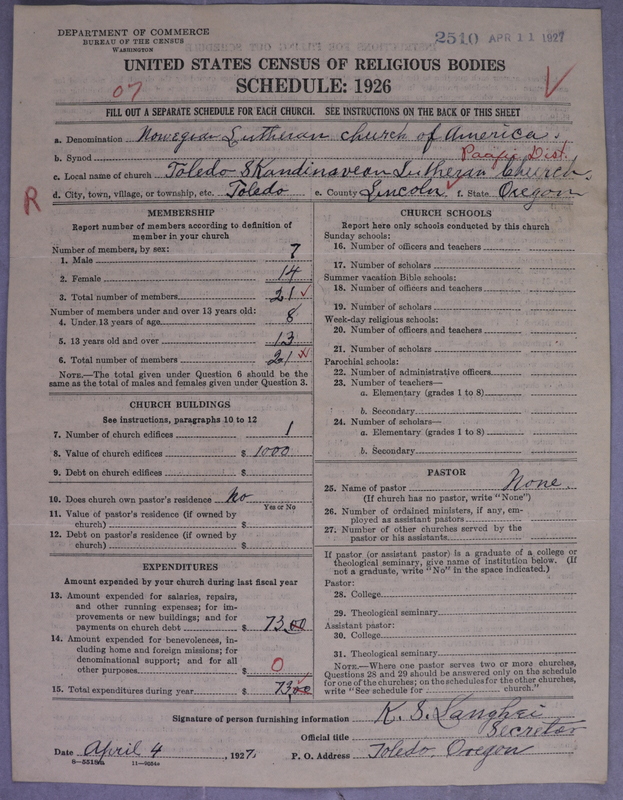 DEPARTMENT OF COMMERCE
BUREAU OF THE CENSUS
WASHINGTON
2510 APR 11 1927
UNITED STATES CENSUS OF RELIGIOUS BODIES
SCHEDULE: 1926
07
FILL OUT A SEPARATE SCHEDULE FOR EACH CHURCH. SEE INSTRUCTIONS ON THE BACK OF THIS SHEET
a. Denomination Nowegian Lutheran church of America.
b. Synod Pacific Dist.
c. Local name of church Toledo Skandinavean Lutheran Church.
R
d. City, town, village, or township, etc. Toledo e. County Lincoln f. State Oregon
MEMBERSHIP
Report number of members according to definition of
member in your church
Number of members, by sex:
1. Male 7
2. Female 14
3. Total number of members 21
Number of members under and over 13 years old:
4. Under 13 years of age 8
5. 13 years old and over 13
6. Total number of members 21
NOTE.—The total given under Question 6 should be the
same as the total of males and females given under Question 3.
CHURCH BUILDINGS
See instructions, paragraphs 10 to 12
7. Number of church edifices 1
8. Value of church edifices $ 1000
9. Debt on church edifices $
10. Does church own pastor's residence No
Yes or No
11. Value of pastor's residence (if owned by
church) $
12. Debt on pastor's residence (if owned by
church) $
EXPENDITURES
Amount expended by your church during last fiscal year
13. Amount expended for salaries, repairs,
and other running expenses; for im-
provements or new buildings; and for
payments on church debt $ 73.00
14. Amount expended for benevolences, in-
cluding home and foreign missions; for
denominational support; and for all
other purposes $ 0
15. Total expenditures during year $ 73.00
CHURCH SCHOOLS
Report here only schools conducted by this church
Sunday schools:
16. Number of officers and teachers
17. Number of scholars
Summer vacation Bible schools:
18. Number of officers and teachers
19. Number of scholars
Week-day religious schools:
20. Number of officers and teachers
21. Number of scholars
Parochial schools:
22. Number of administrative officers
23. Number of teachers—
a. Elementary (grades 1 to 8)
b. Secondary
24. Number of scholars—
a. Elementary (grades 1 to 8)
b. Secondary
PASTOR
25. Name of pastor None.
(If church has no pastor, write "None")
26. Number of ordained ministers, if any, em-
ployed as assistant pastors
27. Number of other churches served by the
pastor or his assistants
If pastor (or assistant pastor) is a graduate of a college or
theological seminary, give name of institution below. (If
not a graduate, write "No" in the space indicated.)
Pastor:
28. College
29. Theological seminary
Assistant pastor:
30. College
31. Theological seminary
NOTE.—Where one pastor serves two or more churches,
Questions 28 and 29 should be answered only on the schedule
for one of the churches; on the schedules for the other churches,
write "See schedule for church."
Signature of person furnishing information K. S. Langhei
Official title Secretor
Date April 4, 1927. P. O. Address Toledo, Oregon